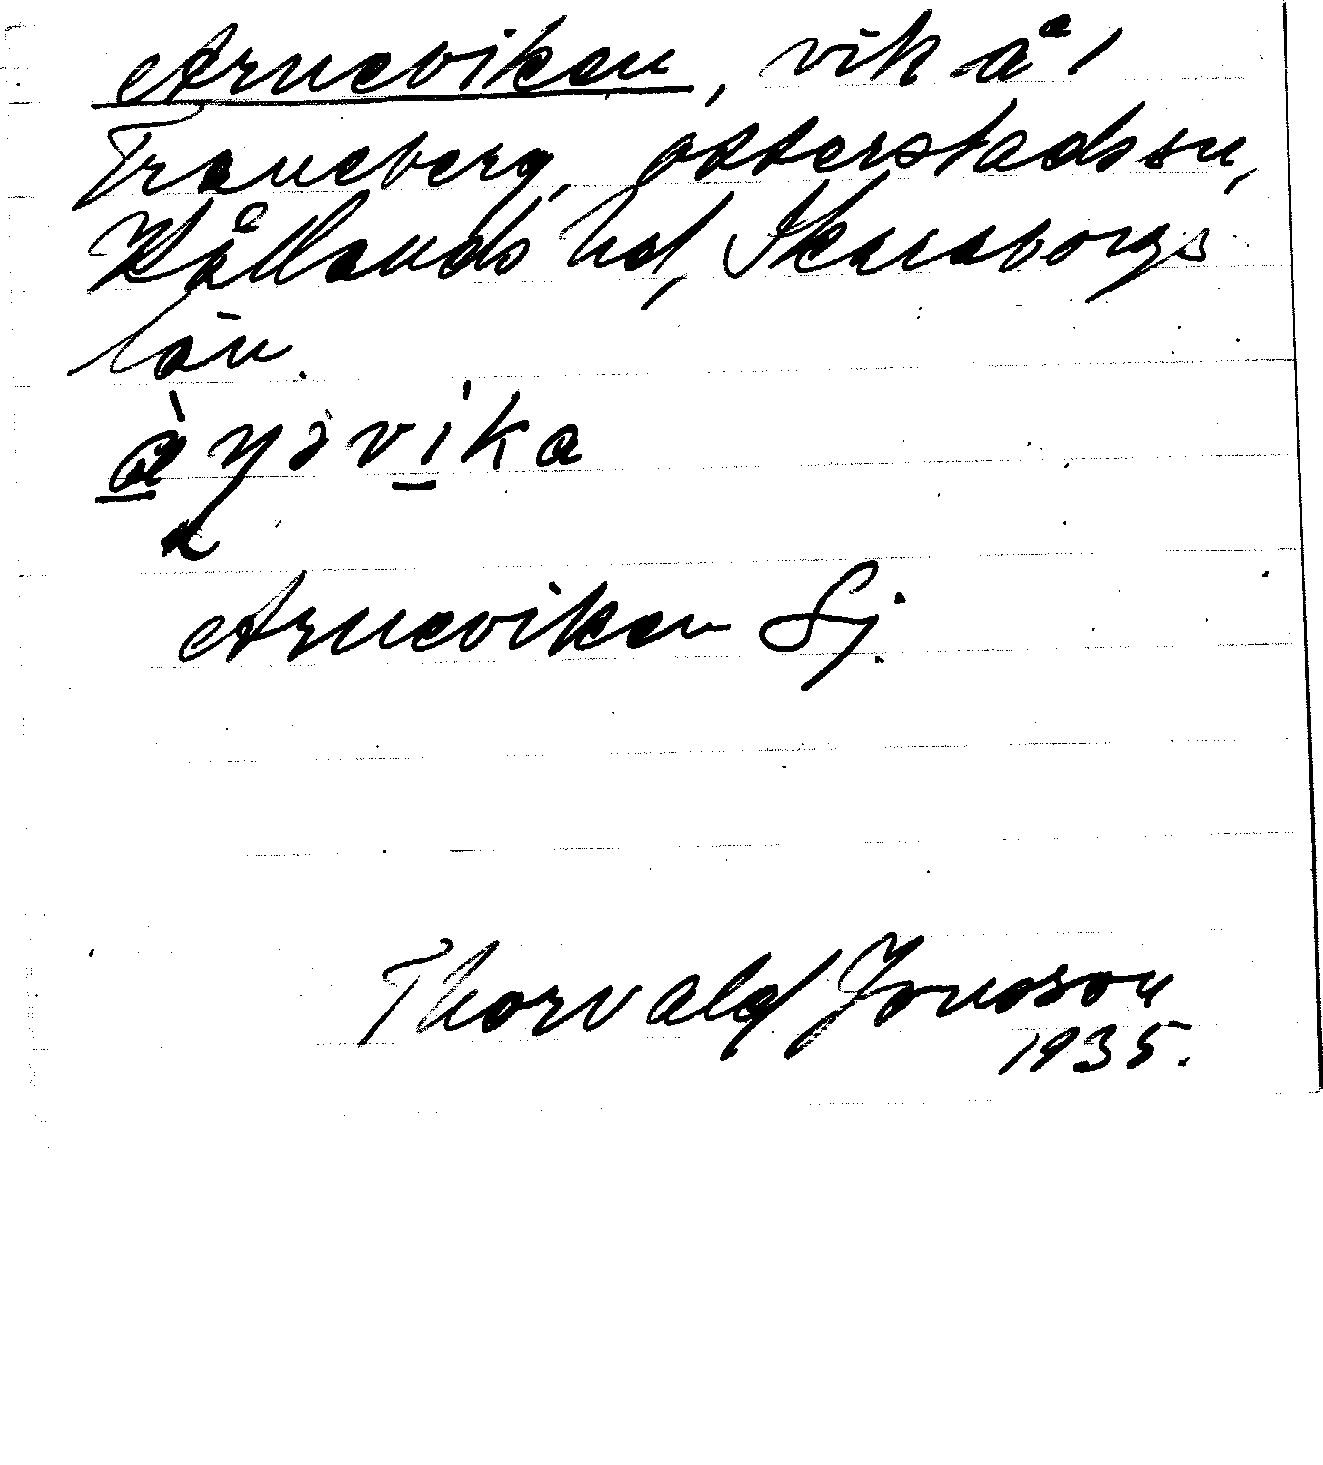 Arneviken, vik å 1
Traneberg, Otterstads sn,
Kållands hd, Skaraborgs
län.
Arneviken Sj.
Thorvald Jonsson
1935.